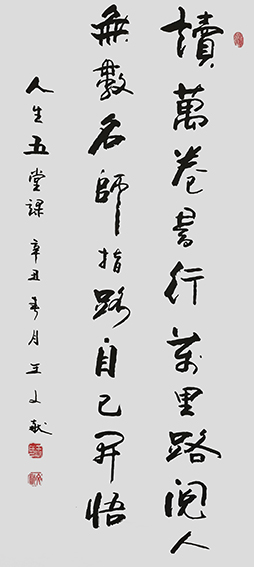 讀萬卷書行萬里路閱人
無數名師指路自己開悟
人生五堂課辛丑春月王文獻